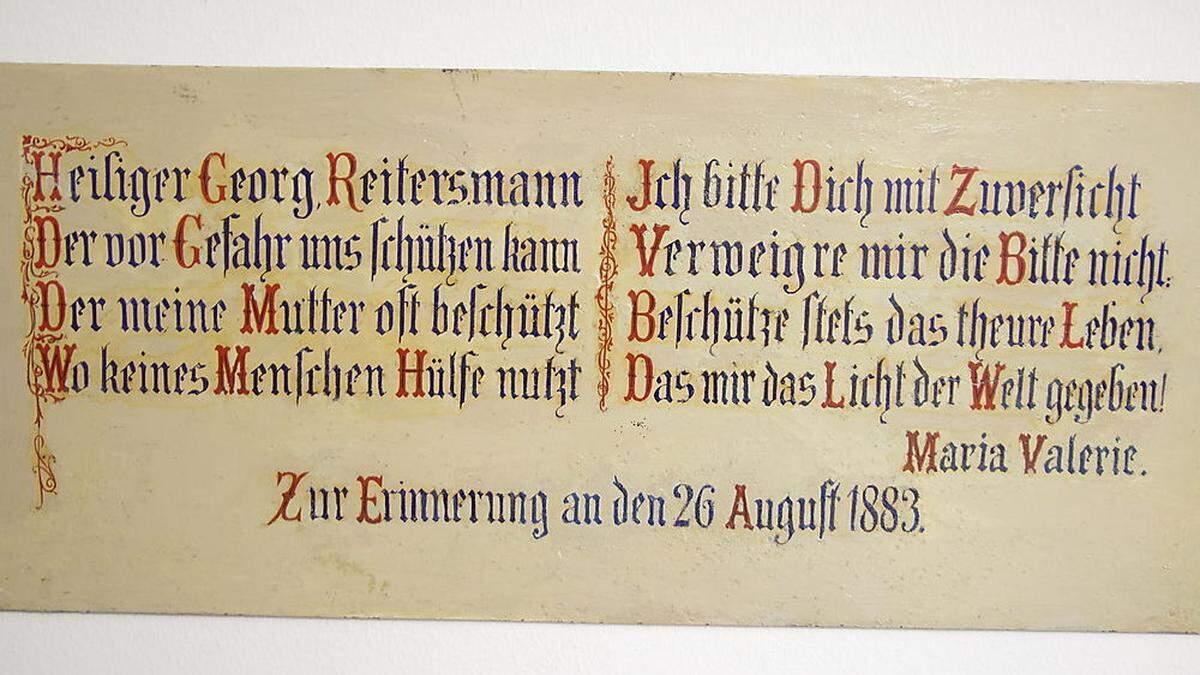 Heiliger Georg, Reitersmann
Der vor Gefahr uns schützen kann
Der meine Mutter oft beschützt
Wo keines Menschen Hülfe nutzt
Ich bitte Dich mit Zuversicht
Verweigre mir die Bitte nicht:
Beschütze stets das theure Leben,
Das mir das Licht der Welt gegeben!
Maria Valerie.
Zur Erinnerung an den 26 August 1883.